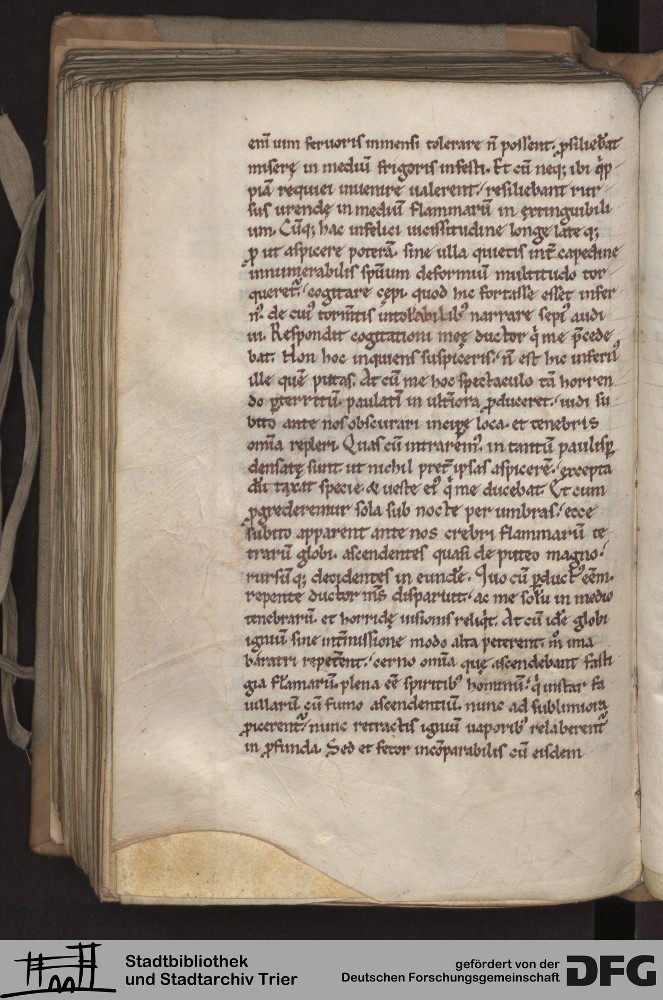 eni̅ uim feruoris inmensi tolerare n̅ possent. ꝓsiliebant
miserę in mediu̅ frigoris infesti. Et cu̅ neq; ibi qip
pia̅ requiei inuenire ualerent. resiliebant rur
sus urendę in mediu̅ flammaru̅ in extinguibili
um. Cu̅q; hac infelici uicissitudine longe late q;
ꝓ ut aspicere potera̅. sine ulla quietis int̅ capedine
innumerabilis sp̅uum deformiu̅ multitudo tor
queret̅. cogitare cępi. quod hic fortasse esset infer
n᷒. de cui᷒ torm̅tis intol̅abilib᷒ narrare sepi᷒ audi
ui. Respondit cogitationi meę ductor q̇ me p̅cede
bat. Non hoc inquiens suspiceris. n̅ est hic inferi᷒
ille que̅ putas. At cu̅ me hoc spectaculo ta̅ horren
do ꝑterritu̅. paulati̅ in ult̅iora ꝓduceret. uidi su
bito ante nos obscurari incipe̅ loca. et tenebris
om̅ia repleri. Quas cu̅ intrarem᷒. in tantu̅ paulisꝑ
densatę sunt. ut nichil pret̅ ipsas aspicere̅. excepta
du̅ taxat specie. & ueste ei᷒ q̇ me ducebat. Et cum
ꝓgrederemur sola sub nocte per umbras. ecce
subito apparent ante nos crebri flammaru̅ te
traru̅ globi. ascendentes quasi de puteo magno.
rursu̅q; decidentes in eunde̅. Quo cu̅ ꝑduct᷒ eem̅.
repente ductor m̅s disparuit. ac me solu̅ in medio
tenebraru̅. et horridę uisionis reliq̇t. At cu̅ ide̅ globi
igniu̅ sine int̅missione modo alta peterent. m̊ ima
baratri repet̅ent. cerno om̅ia quę ascendebant fasti
gia fla̅maru̅. plena ee̅ spiritib᷒ hominu̅. q̇ instar fa
uillaru̅ cu̅ fumo ascendentiu̅. nunc ad sublimiora
ꝓicerent̅. nunc retractis igniu̅ uaporib᷒ relaberent̅
in ꝓfunda. Sed et fetor inco̅parabilis cu̅ eisdem
Stadtbibliothek
und Stadtarchiv Trier
gefördert von der
Deutschen Forschungsgemeinschaft
DFG